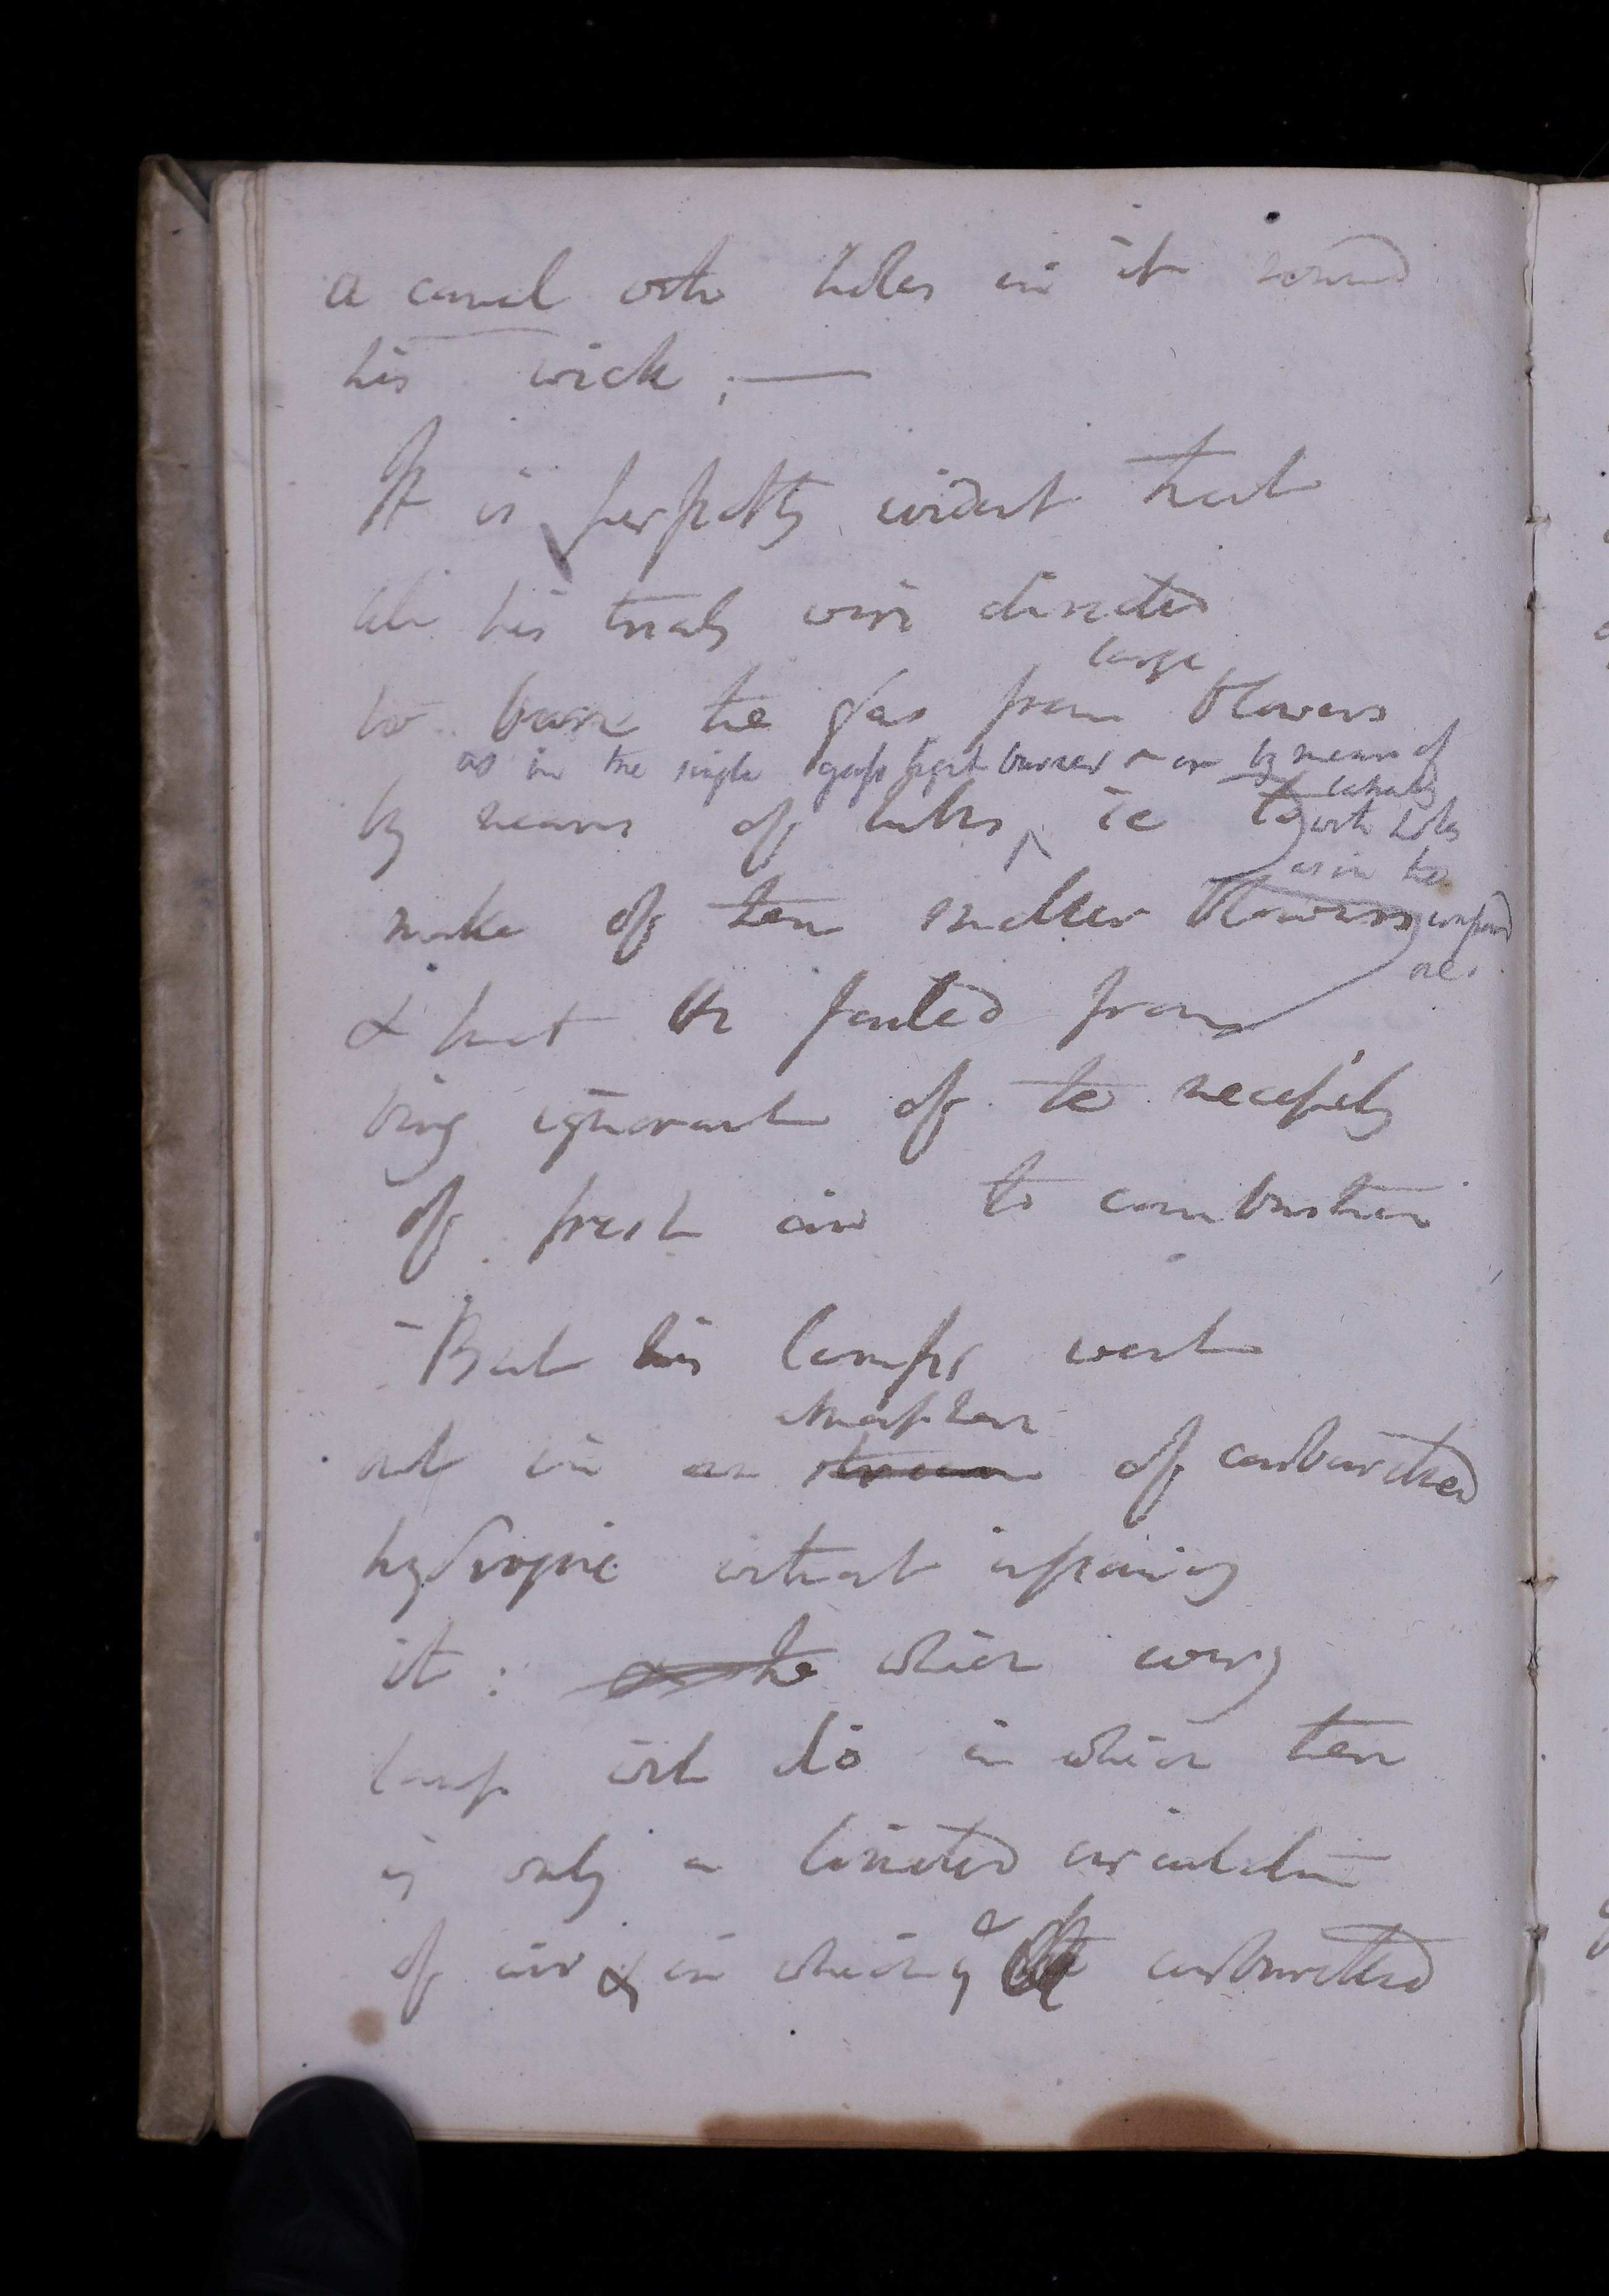 a canal with holes in it round
his wick; —
It is perfectly evident that
all his trials were directed
large
to burn the gas from blowers
as in the single gass light burner or by means of
canals
by means of tubes ie to
with holes
as in the
make of them smaller blowers
compound
one.
& that he failed from
being ignorant of the necessity
of fresh air to combustion
- But his lamps went
atmosphere
out in an stream of carburetted
hydrogene without inflaming
it: & the which every
lamp will do in which there
is only a limited circulation
&
of air & in which carburetted